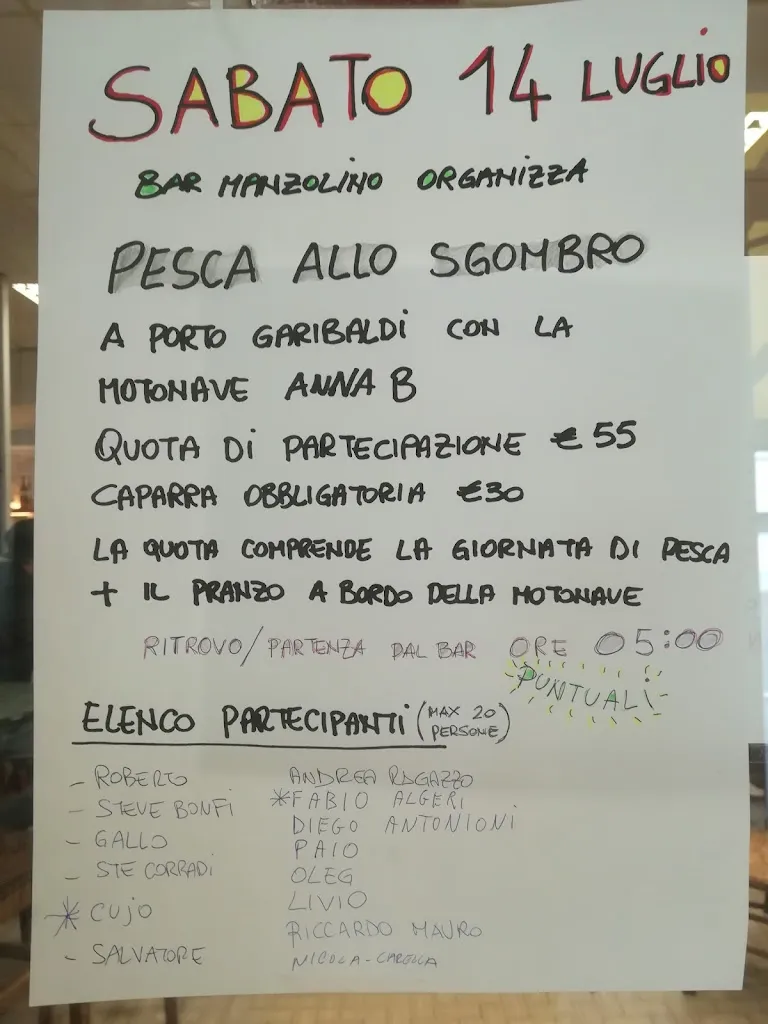 SABATO 14 LUGLIO
BAR MANZOLINO ORGANIZZA
PESCA ALLO SGOMBRO
A PORTO GARIBALDI CON LA
MOTONAVE ANNA B
QUOTA DI PARTECIPAZIONE € 55
CAPARRA OBBLIGATORIA €30
LA QUOTA COMPRENDE LA GIORNATA DI PESCA
+ IL PRANZO A BORDO DELLA MOTONAVE
RITROVO/PARTENZA DAL BAR ORE 05:00
PUNTUALI
ELENCO PARTECIPANTI (MAX 20 PERSONE)
- ROBERTO
- STEVE BONFI
- GALLO
- STE CORRADI
* CUJO
- SALVATORE
ANDREA RAGAZZO
*FABIO ALGERI
DIEGO ANTONIONI
PAIO
OLEG
LIVIO
RICCARDO MAURO
NICOLA -